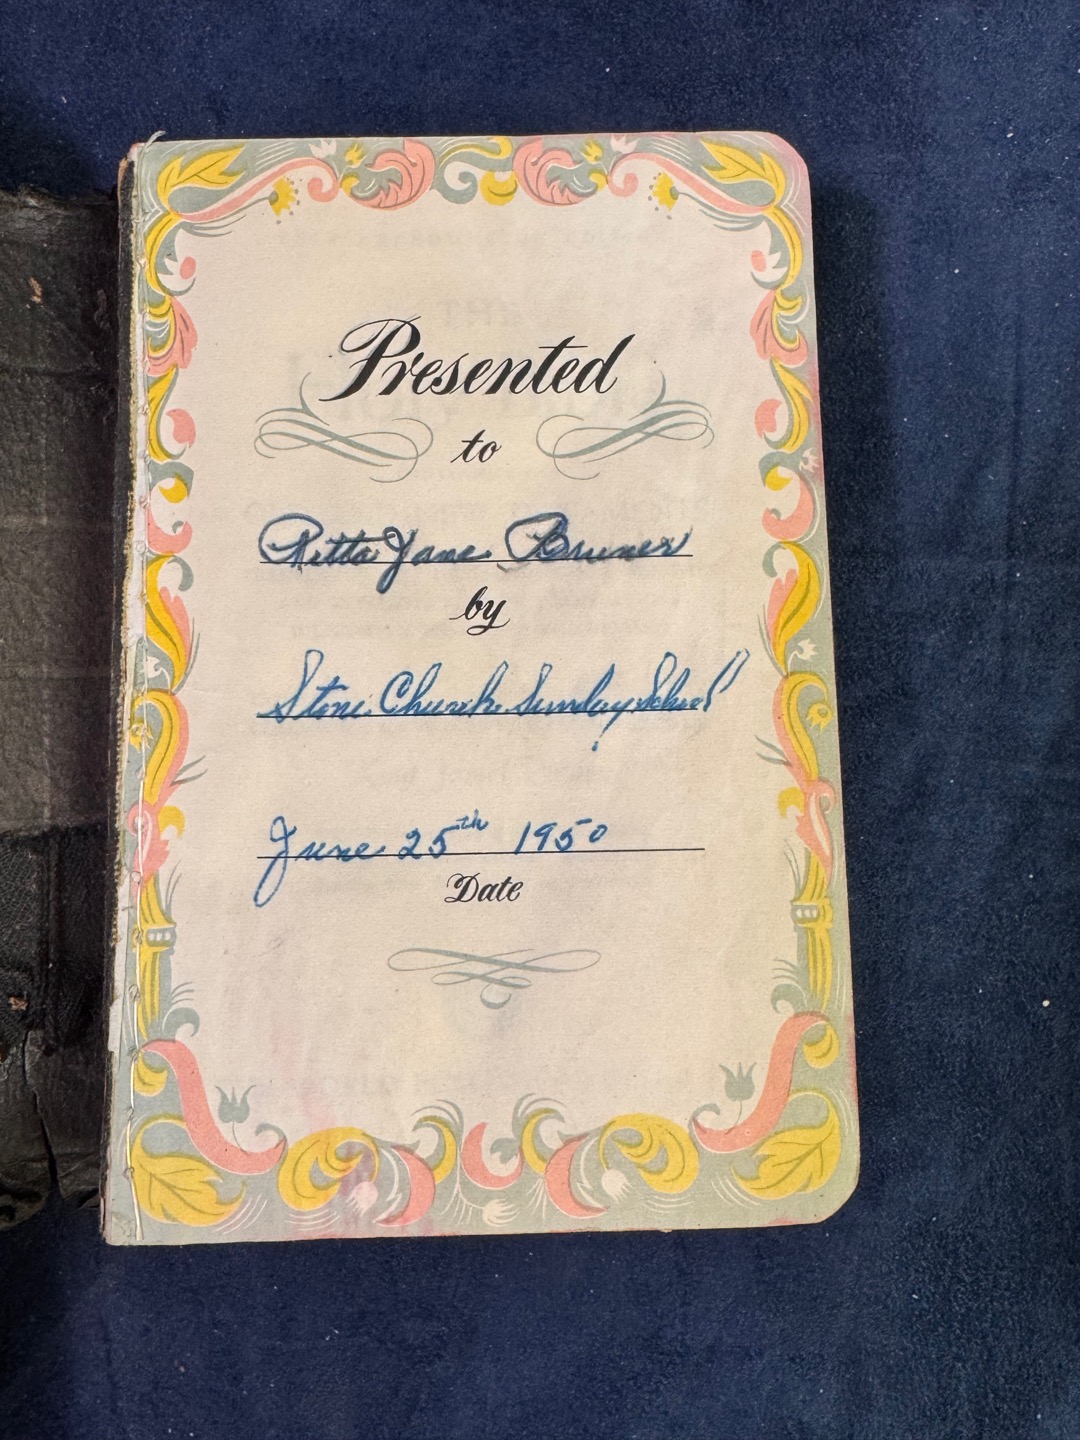 Presented
to
Ritta Jane Bruner
by
Stone Church Sunday School
June 25th 1950
Date